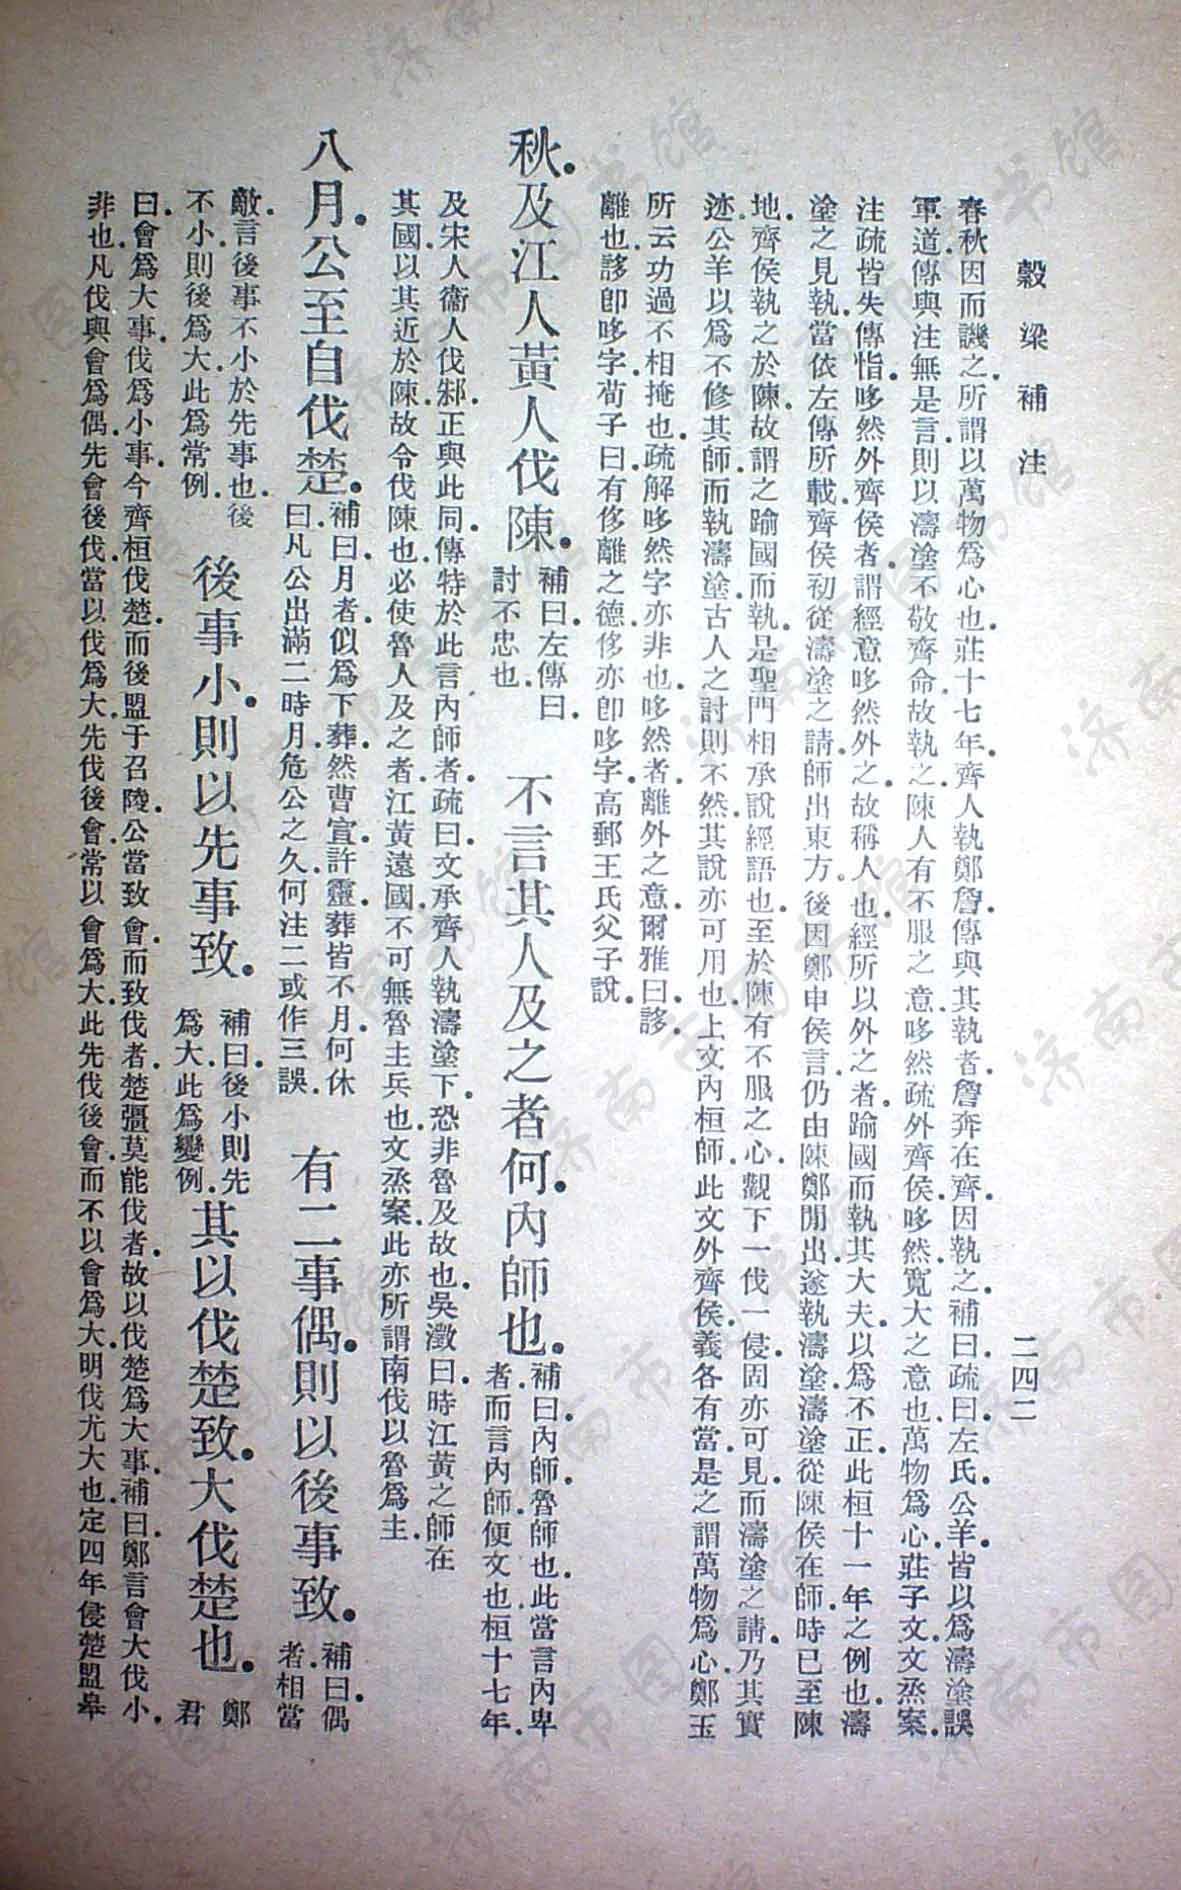 穀梁補注
二四二
春秋因而譏之.所謂以萬物爲心也.莊十七年.齊人執鄭詹.傳與其執者.詹奔在齊.因執之.補曰.疏曰.左氏.公羊.皆以爲濤塗誤
軍道.傳與注無是言.則以濤塗不敬齊命.故執之.陳人有不服之意.哆然疏外齊侯.哆然.寬大之意也.萬物爲心.莊子文.文烝案.
注疏皆失傳恉.哆然外齊侯者.謂經意哆然外之.故稱人也.經所以外之者.踰國而執其大夫.以爲不正.此桓十一年之例也.濤
塗之見執.當依左傳所載.齊侯初從濤塗之請.師出東方.後因鄭申侯言.仍由陳鄭閒出.遂執濤塗.濤塗從陳侯在師.時已至陳
地.齊侯執之於陳.故謂之踰國而執.是聖門相承說經語也.至於陳有不服之心.觀下一伐一侵.固亦可見.而濤塗之請.乃其實
迹.公羊以爲不修其師.而執濤塗.古人之討則不然.其說亦可用也.上文內桓師.此文外齊侯.義各有當.是之謂萬物爲心.鄭玉
所云功過不相掩也.疏解哆然字亦非也.哆然者.離外之意.爾雅曰.誃.
離也.誃卽哆字.荀子曰.有侈離之德.侈亦卽哆字.高郵王氏父子說.
秋.及江人黃人伐陳.補曰.左傳曰.
討不忠也.
不言其人及之者何.內師也.補曰.內師.魯師也.此當言內卑
者.而言內師.便文也.桓十七年.
及宋人衞人伐邾.正與此同.傳特於此言內師者.疏曰.文承齊人執濤塗下.恐非魯及故也.吳澂曰.時江黃之師在
其國.以其近於陳.故令伐陳也.必使魯人及之者.江黃遠國.不可無魯主兵也.文烝案.此亦所謂南伐以魯爲主.
八月.公至自伐楚.補曰.月者.似爲下葬.然曹宣許靈葬皆不月.何休
曰.凡公出滿二時月.危公之久.何注二或作三.誤.
有二事偶.則以後事致.補曰.偶
者.相當
敵.言後事不小於先事也.後
不小.則後爲大.此爲常例.
後事小.則以先事致.補曰.後小則先
爲大.此爲變例.
其以伐楚致.大伐楚也.鄭
君
曰.會爲大事.伐爲小事.今齊桓伐楚.而後盟于召陵.公當致會.而致伐者.楚彊莫能伐者.故以伐楚爲大事.補曰.鄭言會大伐小.
非也.凡伐與會爲偶.先會後伐.當以伐爲大.先伐後會.常以會爲大.此先伐後會.而不以會爲大.明伐尤大也.定四年侵楚盟皋